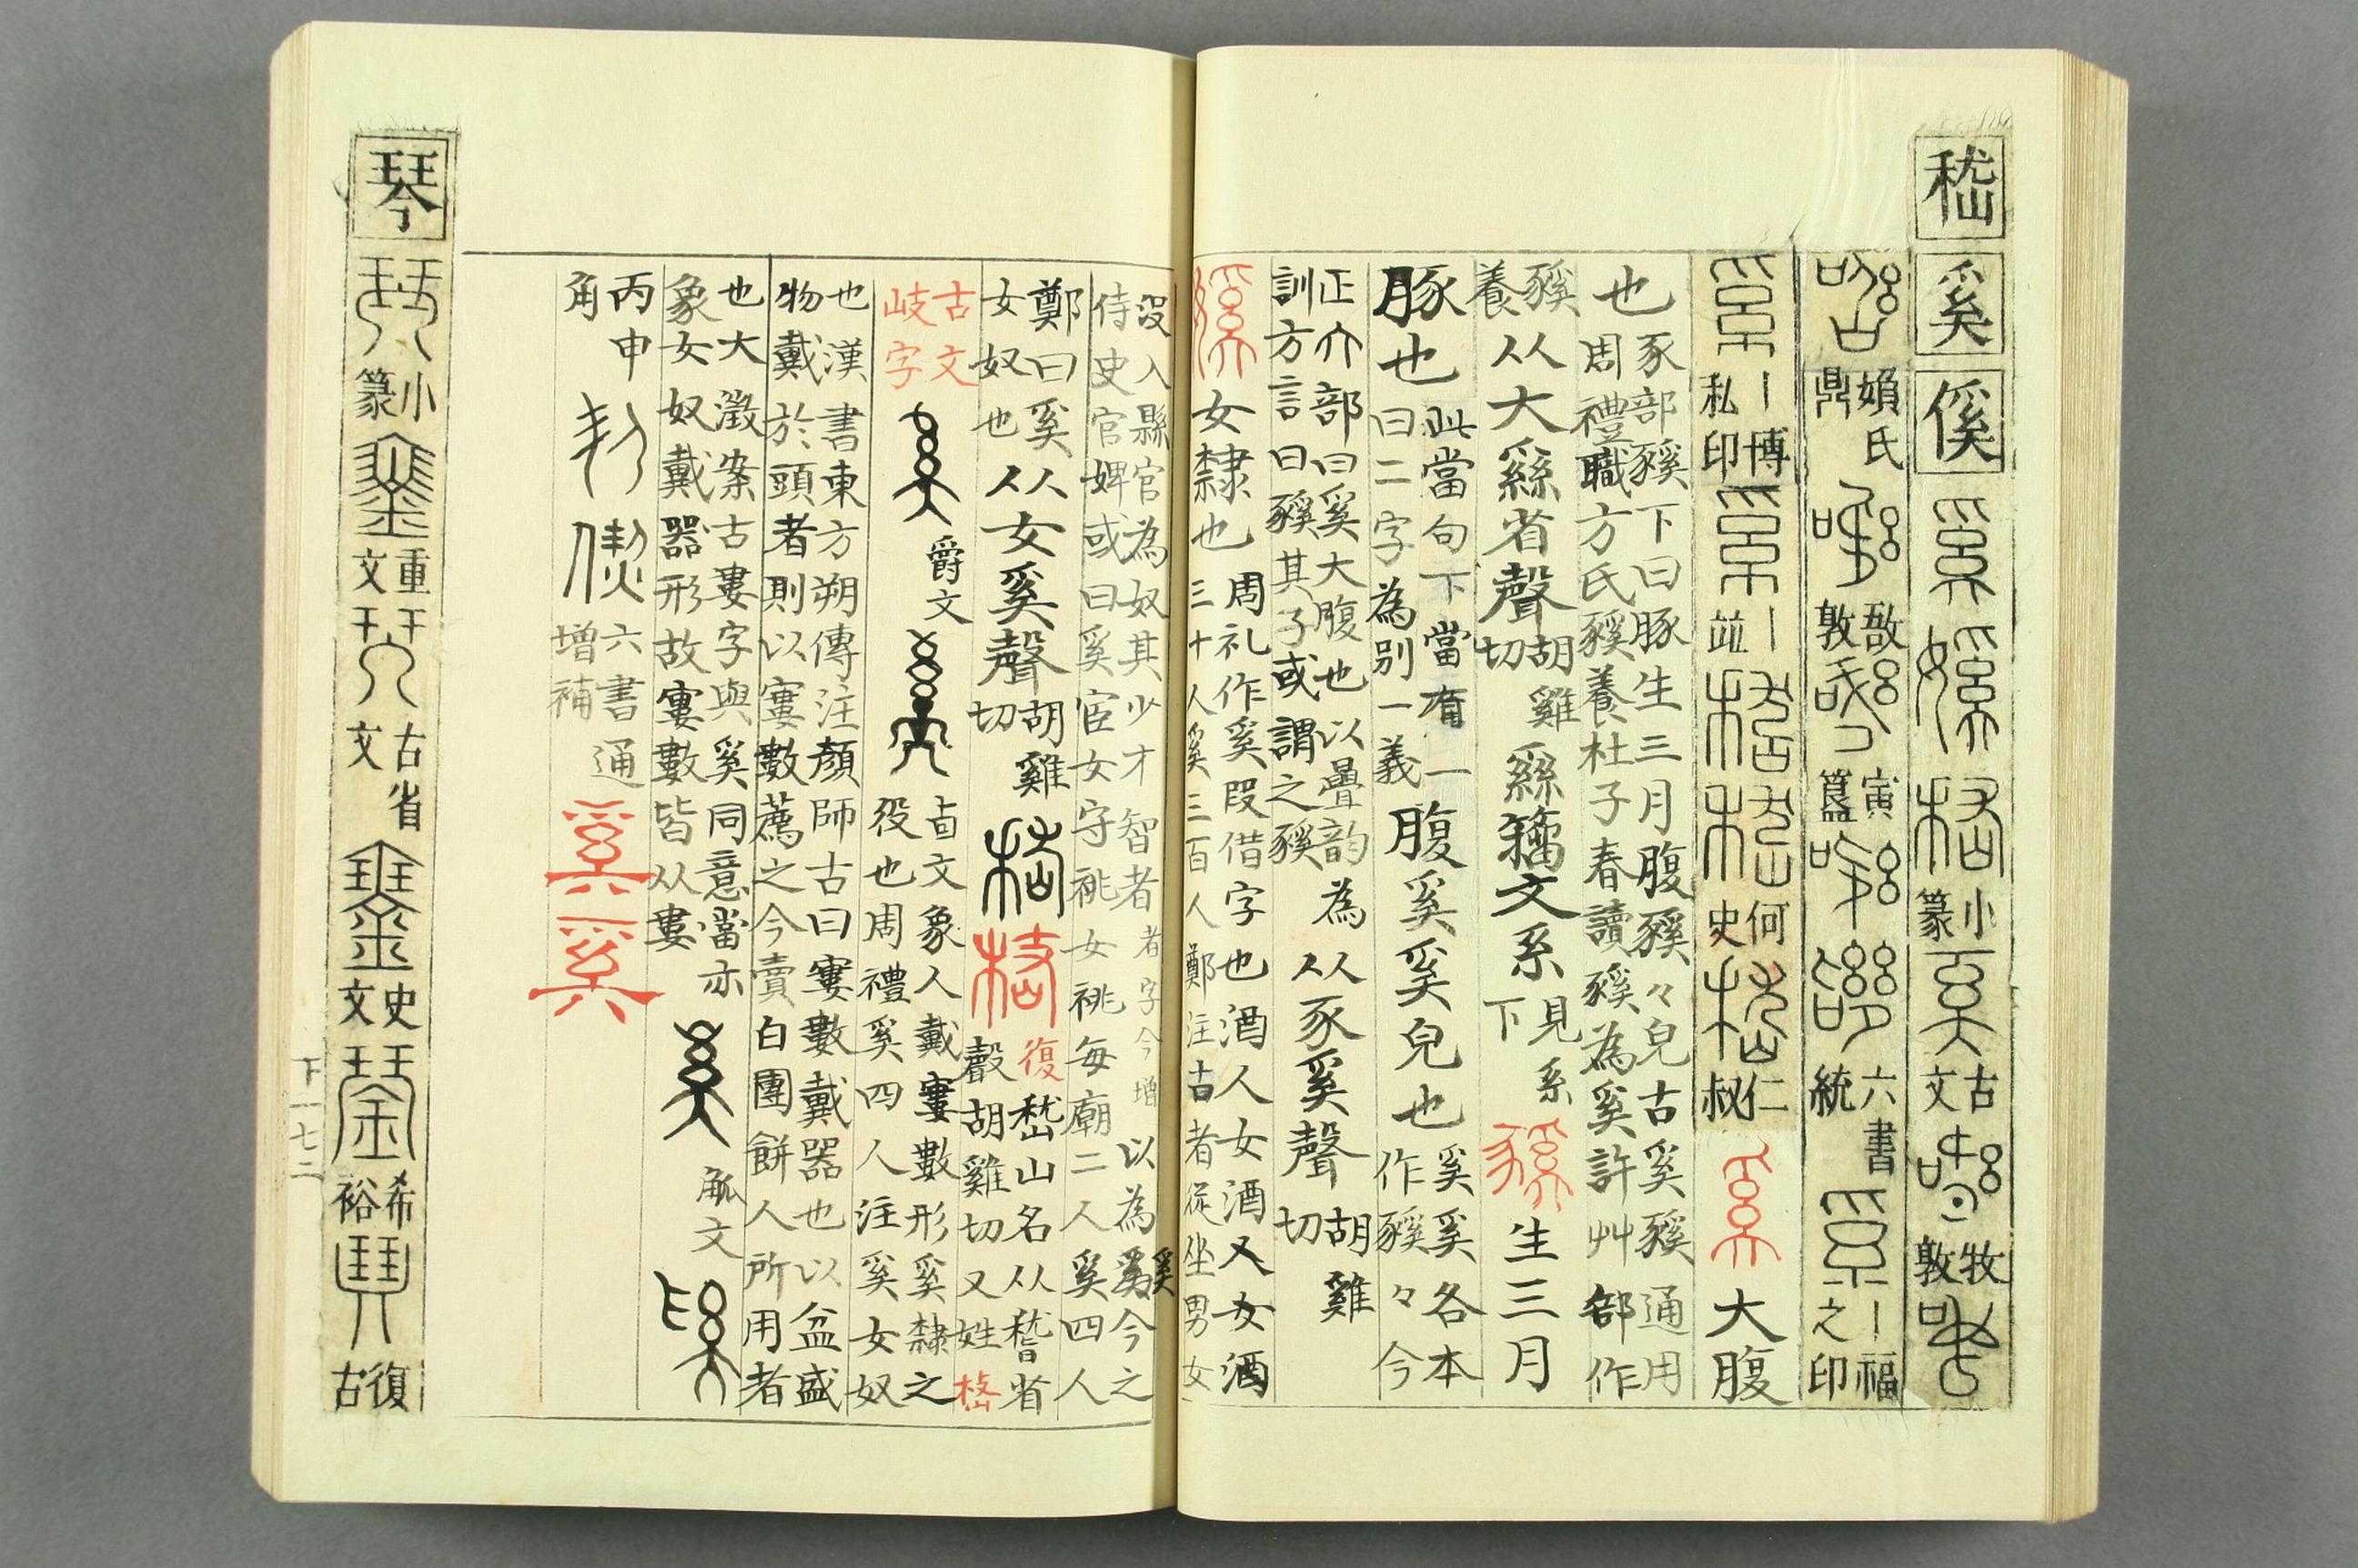 嵇 奚 傒 小篆 古文 牧敦
嬇氏鼎 敔敦 寅簋 六書統 丨福之印
丨博私印 丨並 何史 仁叔 大腹
也豕部豯下曰豚生三月腹豯々皃古奚豯通用
周禮職方氏豯養杜子春讀豯為奚許艸部作
豯養从大𦃟省聲胡雞切 籒文系見系下 生三月
豚也此當句下當有一曰二字為別一義腹奚奚皃也奚奚各本作豯々今
正亣部曰奚大腹也以疊韵為訓方言曰豬其子或謂之豯从豕奚聲胡雞切
女隸也周礼作奚叚借字也酒人女酒
三十人奚三百人鄭注古者從坐男女
沒入縣官為奴其少才智者者字今增以為奚今之
侍史官婢或曰奚宦女守祧女祧每廟二人奚四人
鄭曰奚女奴也从女奚聲胡雞切 復嵇山名从稽省聲胡雞切又姓
古文岐字 爵文 卣文象人戴寠數形奚隸之役也周禮奚四人注奚女奴
也漢書東方朔傳注顏師古曰寠數戴器也以盆盛
物戴於頭者則以寠數薦之今賣白團餅人所用者
也大澂案古婁字與奚同意當亦
象女奴戴器形故寠數皆从婁 觚文
丙申角 六書通增補
琴 小篆 重文 古文省 史文 希裕 復古
下一七二